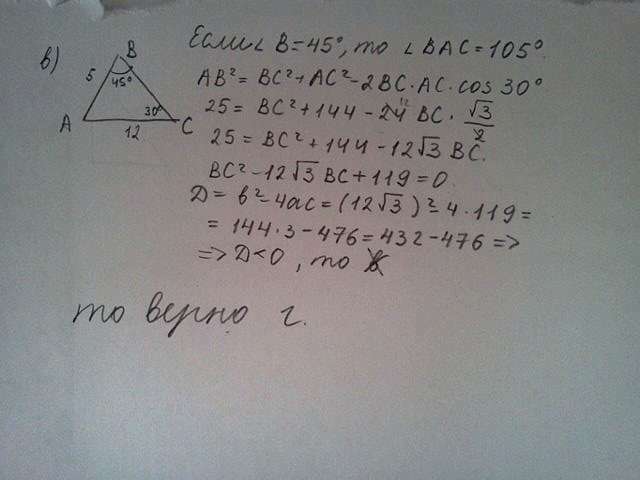 в)
B
5
45°
30°
A
12
C
Если ∠ B = 45°, то ∠ BAC = 105°.
AB² = BC² + AC² - 2BC · AC · cos 30°
25 = BC² + 144 - 24 BC · √3/2
25 = BC² + 144 - 12√3 BC.
BC² - 12√3 BC + 119 = 0.
Д = b² - 4ac = (12√3)² - 4 · 119 =
= 144 · 3 - 476 = 432 - 476 =>
=> Д < 0, то
то верно г.